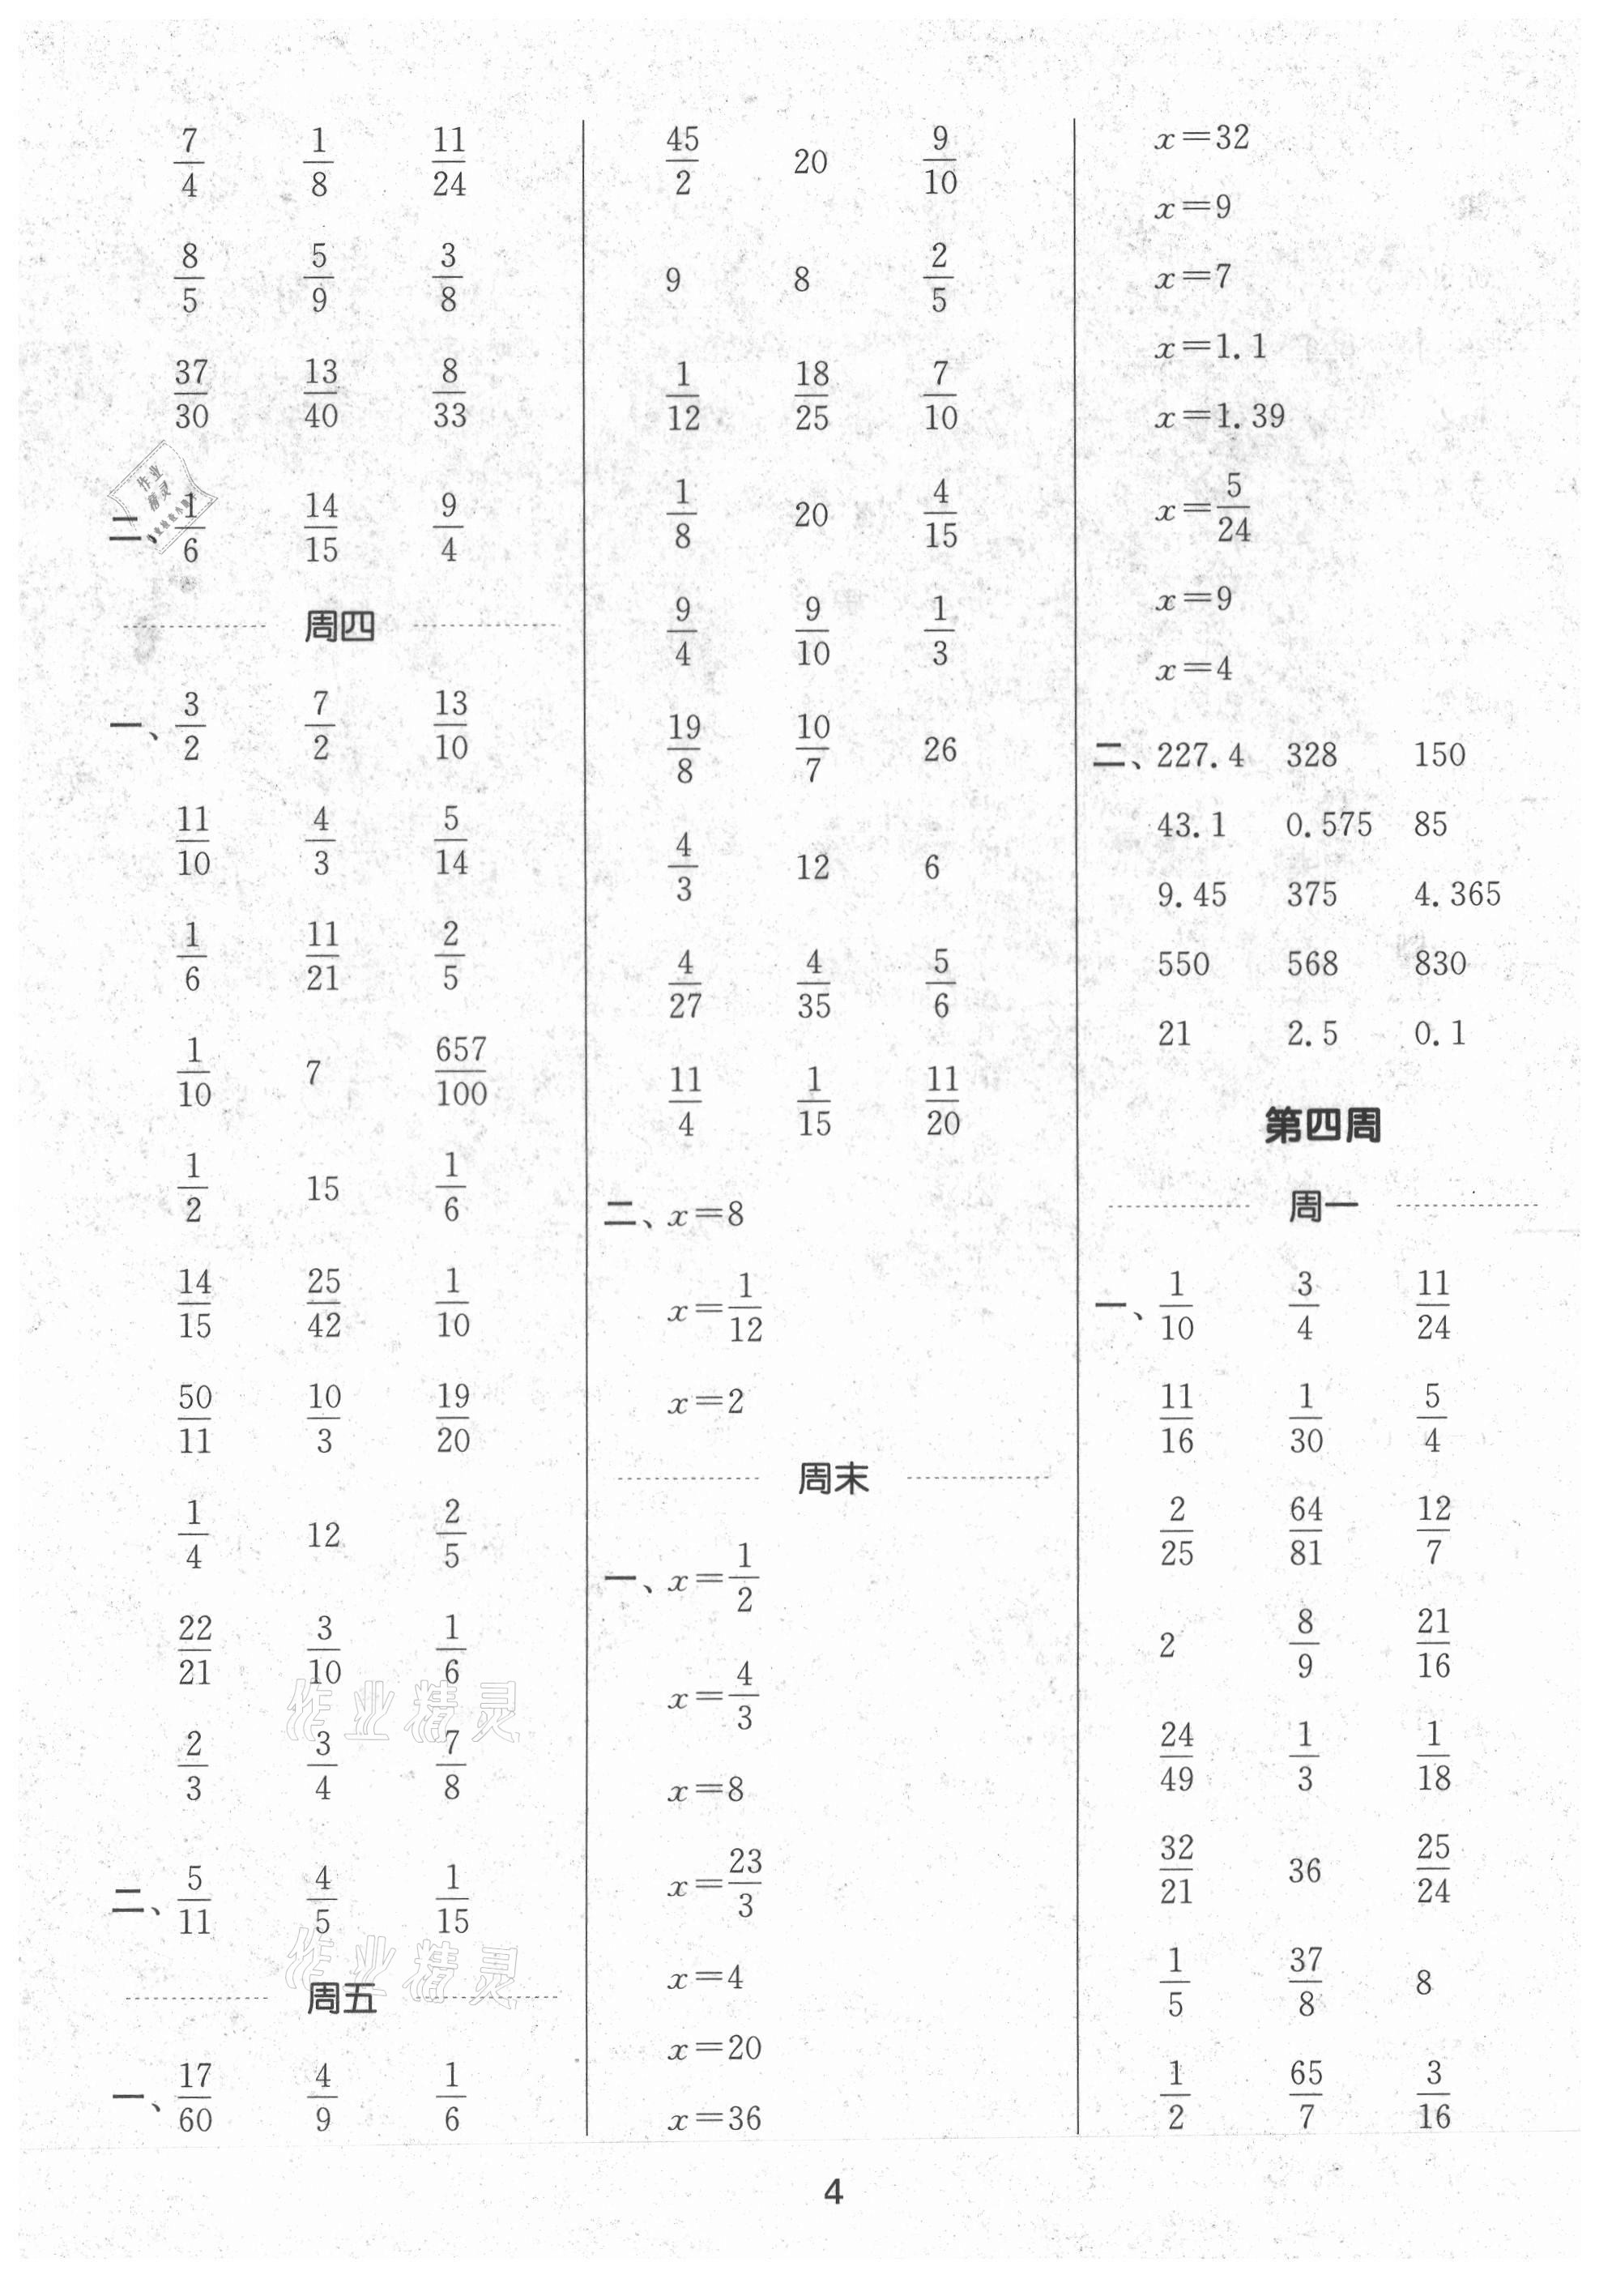 7/4 1/8 11/24
8/5 5/9 3/8
37/30 13/40 8/33
二、1/6 14/15 9/4
周四
一、3/2 7/2 13/10
11/10 4/3 5/14
1/6 11/21 2/5
1/10 7 657/100
1/2 15 1/6
14/15 25/42 1/10
50/11 10/3 19/20
1/4 12 2/5
22/21 3/10 1/6
2/3 3/4 7/8
二、5/11 4/5 1/15
周五
一、17/60 4/9 1/6
45/2 20 9/10
9 8 2/5
1/12 18/25 7/10
1/8 20 4/15
9/4 9/10 1/3
19/8 10/7 26
4/3 12 6
4/27 4/35 5/6
11/4 1/15 11/20
二、x=8
x=1/12
x=2
周末
一、x=1/2
x=4/3
x=8
x=23/3
x=4
x=20
x=36
x=32
x=9
x=7
x=1.1
x=1.39
x=5/24
x=9
x=4
二、227.4 328 150
43.1 0.575 85
9.45 375 4.365
550 568 830
21 2.5 0.1
第四周
周一
一、1/10 3/4 11/24
11/16 1/30 5/4
2/25 64/81 12/7
2 8/9 21/16
24/49 1/3 1/18
32/21 36 25/24
1/5 37/8 8
1/2 65/7 3/16
4
作业
精灵
作业精灵
作业精灵